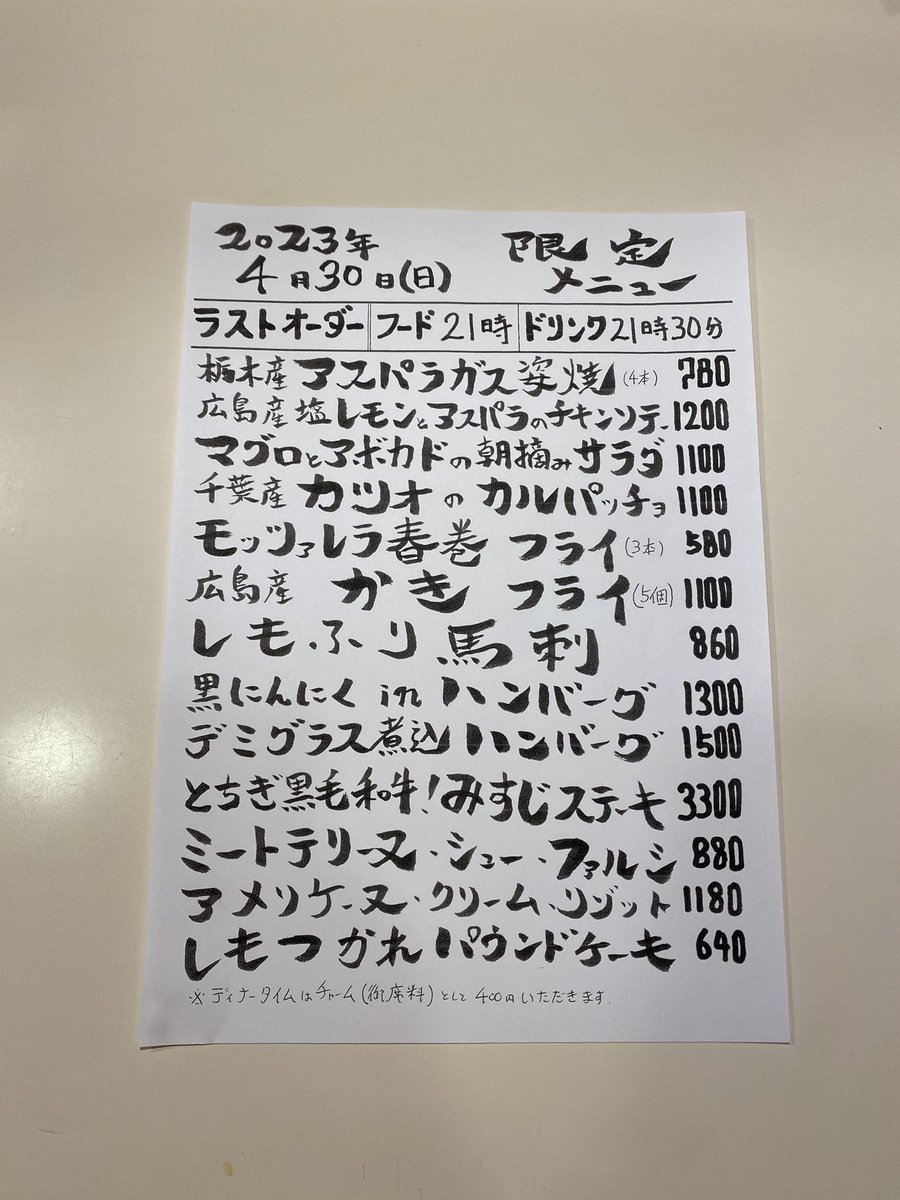 2023年 限定
4月30日(日) メニュー
ラストオーダー フード21時 ドリンク21時30分
栃木産 アスパラガス姿焼(4本) 780
広島産塩レモンとアスパラのチキンソテー 1200
マグロとアボカドの朝摘みサラダ 1100
千葉産 カツオのカルパッチョ 1100
モッツァレラ春巻フライ(3本) 580
広島産 かきフライ(5個) 1100
しもふり馬刺 860
黒にんにくinハンバーグ 1300
デミグラス煮込ハンバーグ 1500
とちぎ黒毛和牛!みすじステーキ 3300
ミートテリーヌ・シュー・ファルシ 880
アメリケーヌ・クリーム・リゾット 1180
しもつかれパウンドケーキ 640
※ディナータイムはチャーム(御席料)として400円いただきます.